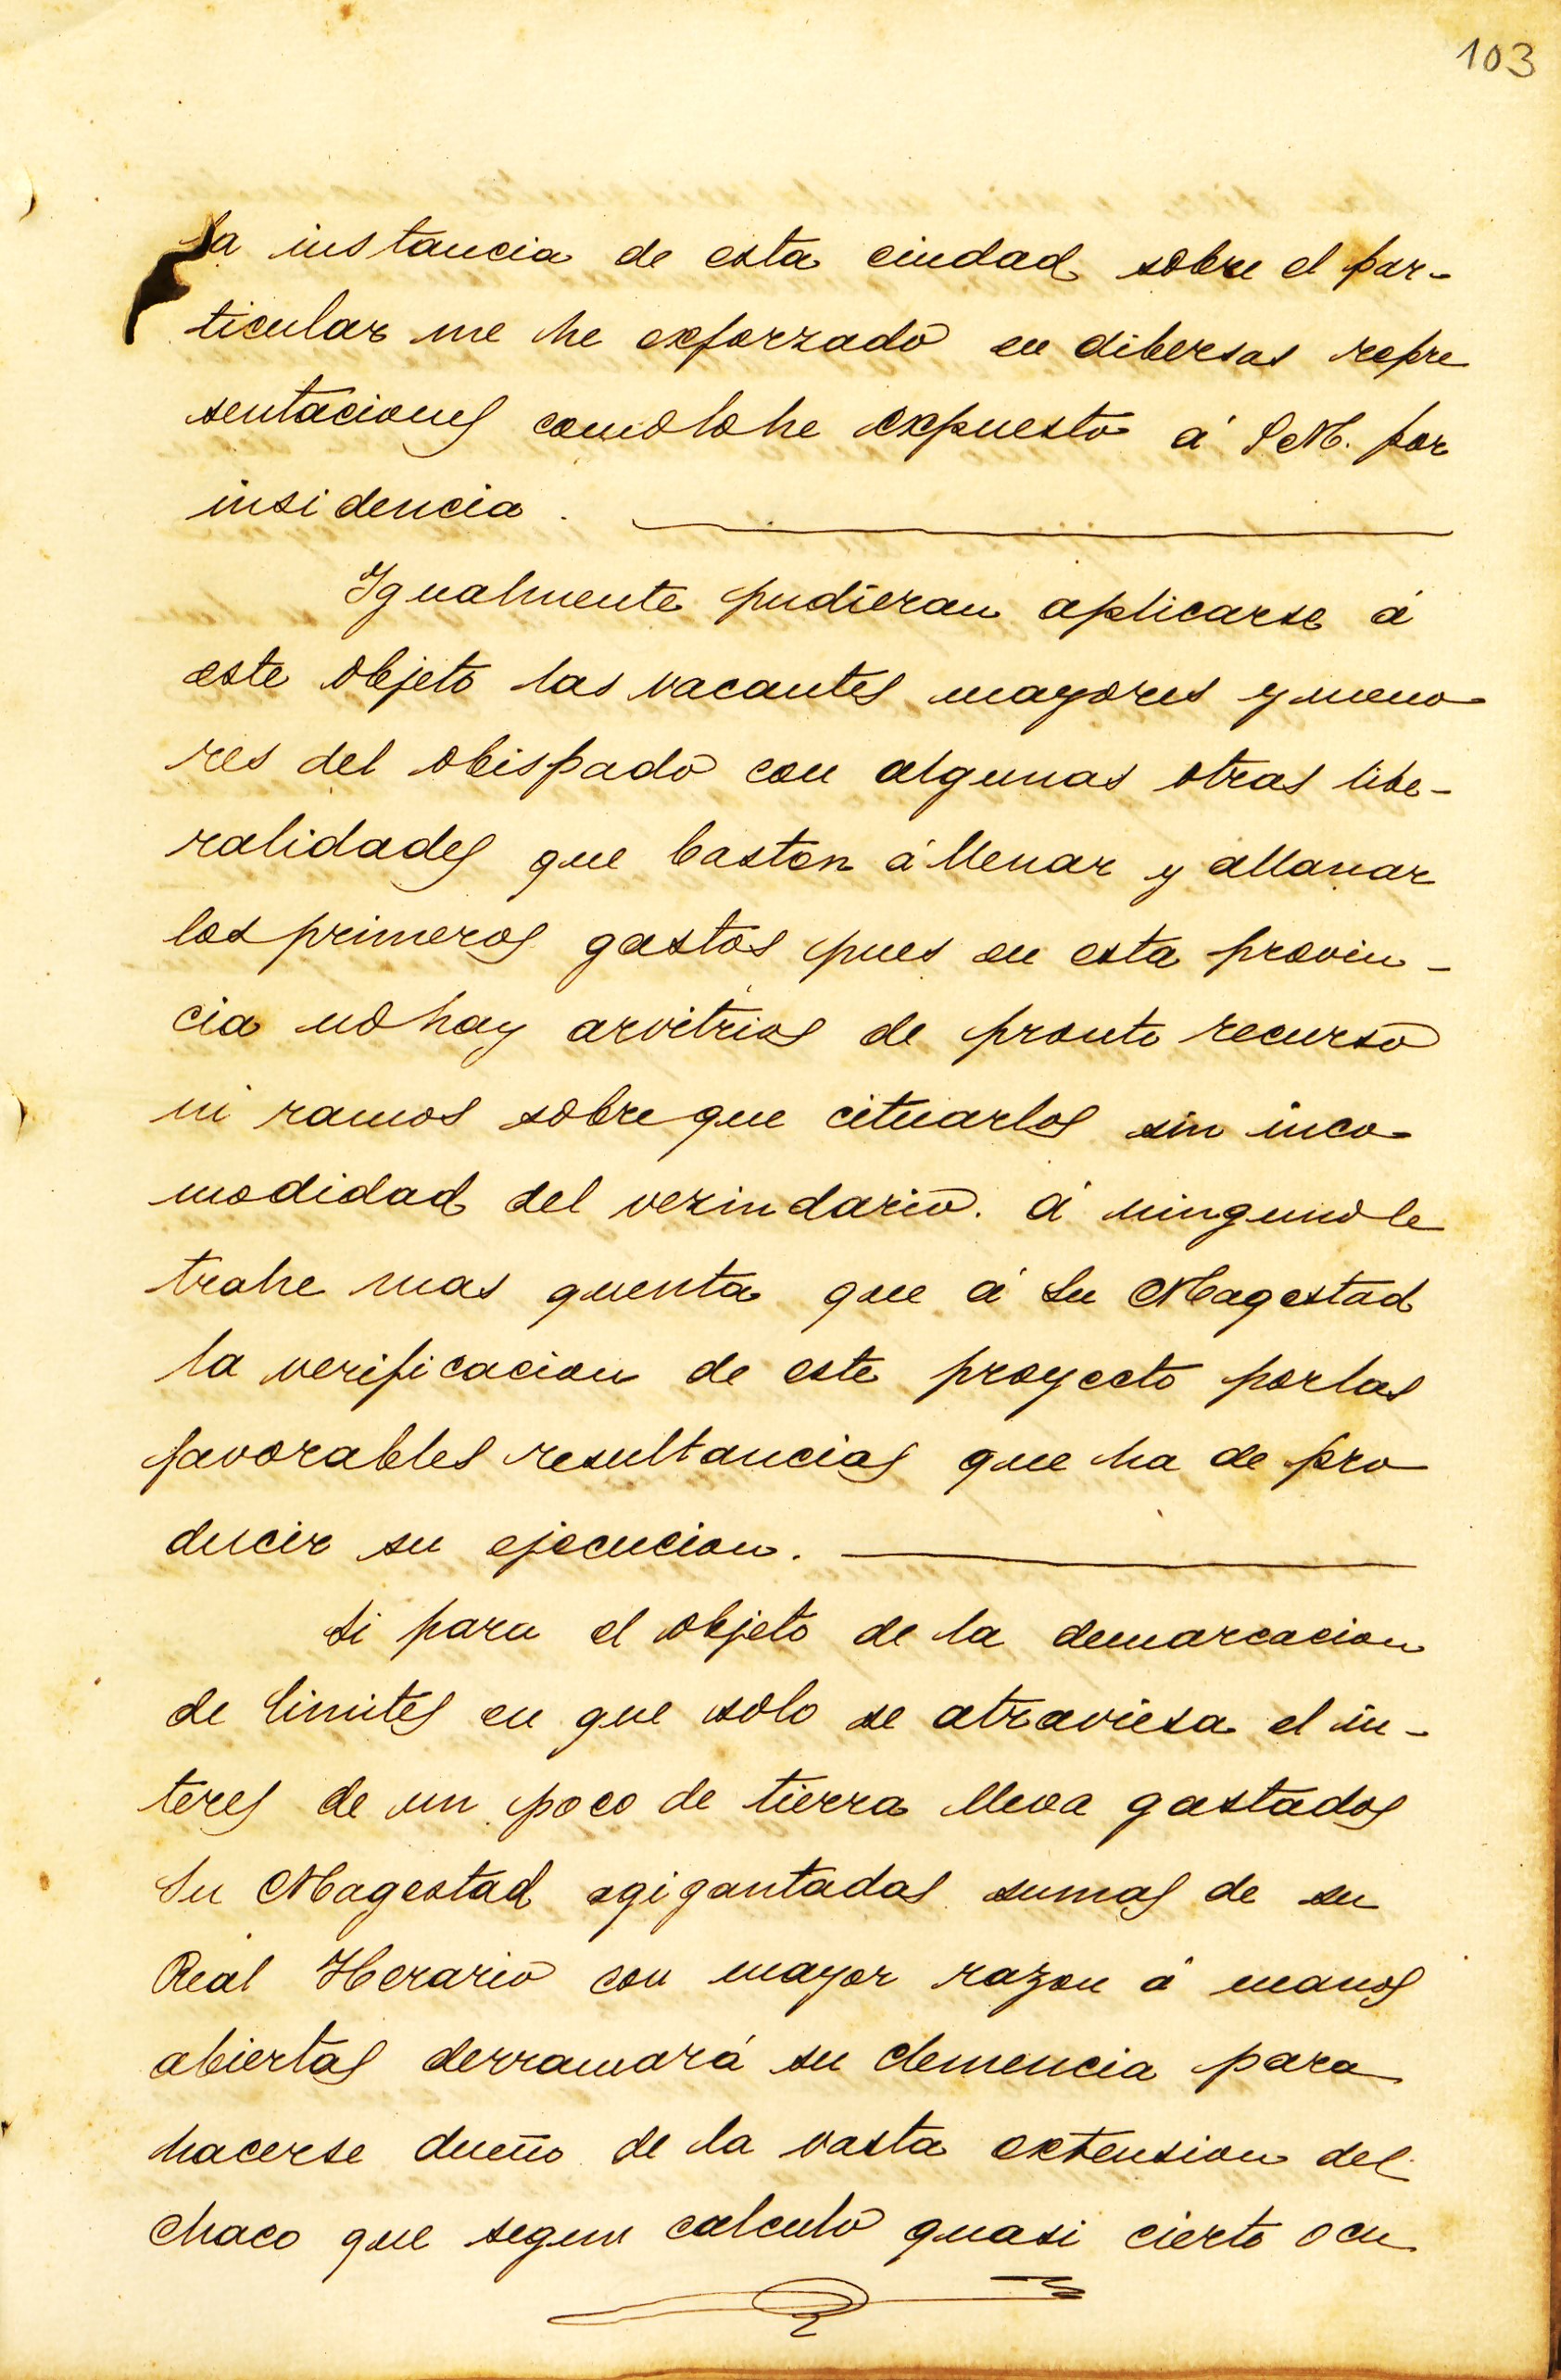 103
la instancia de esta ciudad sobre el par-
ticular me he exforzado en dibersas repre
sentaciones comolohe expuesto á S M. por
insidencia.
Igualmente pudieran aplicarse á
este objeto las vacantes mayores y meno
res del obispado con algunas otras libe-
ralidades que basten á llenar y allanar
los primeros gastos pues en esta provin-
cia no hay arvitrios de pronto recurso
ni ramos sobre que cituarlos sin inco-
modidad del vezindario. á ninguno le
trahe mas quenta que á Su Magestad
la verificacion de este proyecto por las
favorables resultancias que ha de pro
ducir su ejecucion.
Si para el objeto de la demarcacion
de limites en que solo se atraviesa el in-
teres de un poco de tierra lleva gastados
Su Magestad agigantadas sumas de su
Real Herario con mayor razon á manos
abiertas derramará su clemencia para
hacerse dueño de la vasta extension del
chaco que segun calculo quasi cierto ocu